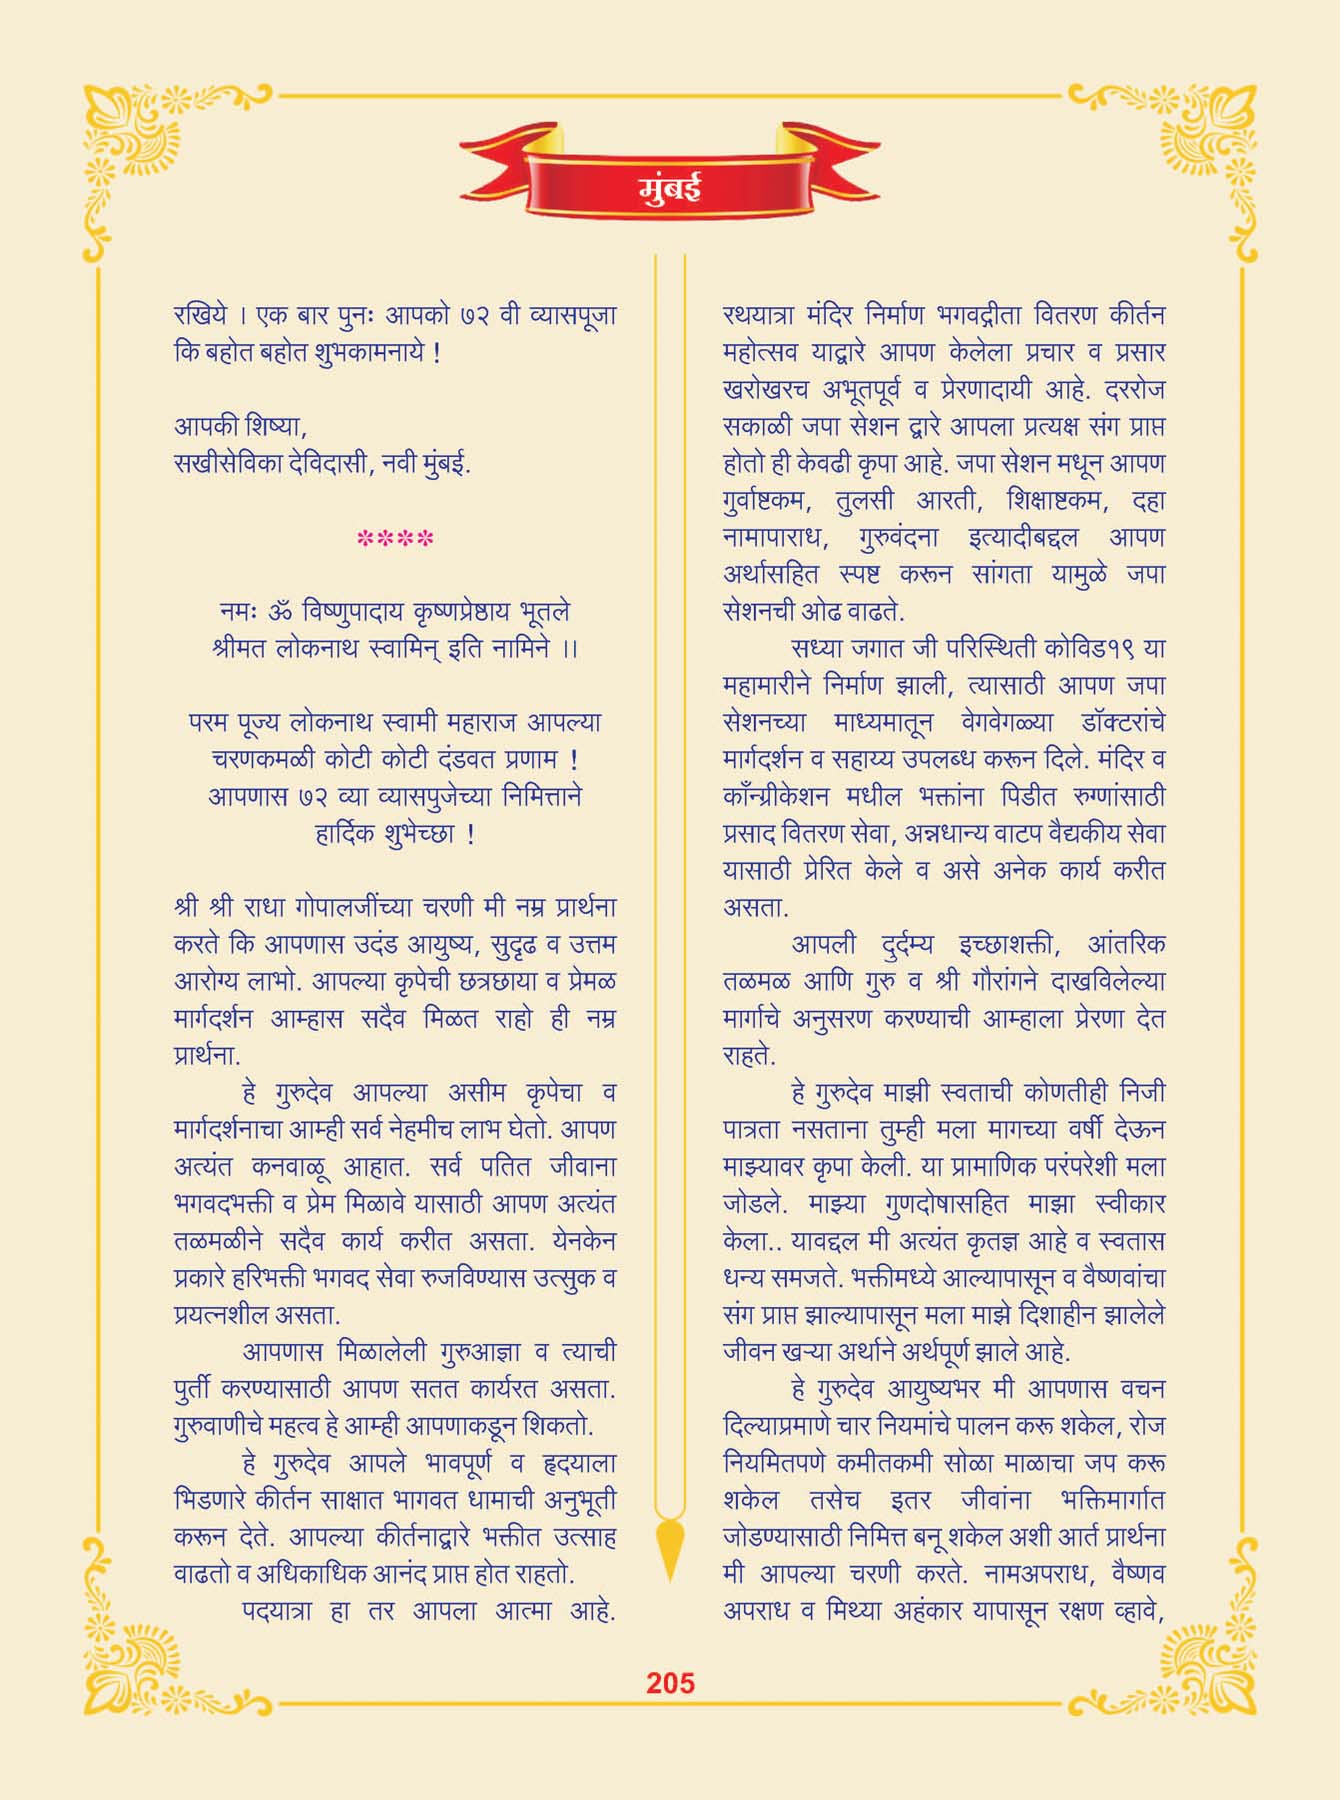 मुंबई
रखिये । एक बार पुनः आपको ७२ वी व्यासपूजा
कि बहोत बहोत शुभकामनाये !
आपकी शिष्या,
सखीसेविका देविदासी, नवी मुंबई.
****
नमः ॐ विष्णुपादाय कृष्णप्रेष्ठाय भूतले
श्रीमत लोकनाथ स्वामिन् इति नामिने ।।
परम पूज्य लोकनाथ स्वामी महाराज आपल्या
चरणकमळी कोटी कोटी दंडवत प्रणाम !
आपणास ७२ व्या व्यासपुजेच्या निमित्ताने
हार्दिक शुभेच्छा !
श्री श्री राधा गोपालजींच्या चरणी मी नम्र प्रार्थना
करते कि आपणास उदंड आयुष्य, सुदृढ व उत्तम
आरोग्य लाभो. आपल्या कृपेची छत्रछाया व प्रेमळ
मार्गदर्शन आम्हास सदैव मिळत राहो ही नम्र
प्रार्थना.
हे गुरुदेव आपल्या असीम कृपेचा व
मार्गदर्शनाचा आम्ही सर्व नेहमीच लाभ घेतो. आपण
अत्यंत कनवाळू आहात. सर्व पतित जीवाना
भगवदभक्ती व प्रेम मिळावे यासाठी आपण अत्यंत
तळमळीने सदैव कार्य करीत असता. येनकेन
प्रकारे हरिभक्ती भगवद सेवा रुजविण्यास उत्सुक व
प्रयत्नशील असता.
आपणास मिळालेली गुरुआज्ञा व त्याची
पुर्ती करण्यासाठी आपण सतत कार्यरत असता.
गुरुवाणीचे महत्व हे आम्ही आपणाकडून शिकतो.
हे गुरुदेव आपले भावपूर्ण व हृदयाला
भिडणारे कीर्तन साक्षात भागवत धामाची अनुभूती
करून देते. आपल्या कीर्तनाद्वारे भक्तीत उत्साह
वाढतो व अधिकाधिक आनंद प्राप्त होत राहतो.
पदयात्रा हा तर आपला आत्मा आहे.
रथयात्रा मंदिर निर्माण भगवद्गीता वितरण कीर्तन
महोत्सव याद्वारे आपण केलेला प्रचार व प्रसार
खरोखरच अभूतपूर्व व प्रेरणादायी आहे. दररोज
सकाळी जपा सेशन द्वारे आपला प्रत्यक्ष संग प्राप्त
होतो ही केवढी कृपा आहे. जपा सेशन मधून आपण
गुर्वाष्टकम, तुलसी आरती, शिक्षाष्टकम, दहा
नामापाराध, गुरुवंदना इत्यादीबद्दल आपण
अर्थासहित स्पष्ट करून सांगता यामुळे जपा
सेशनची ओढ वाढते.
सध्या जगात जी परिस्थिती कोविड१९ या
महामारीने निर्माण झाली, त्यासाठी आपण जपा
सेशनच्या माध्यमातून वेगवेगळ्या डॉक्टरांचे
मार्गदर्शन व सहाय्य उपलब्ध करून दिले. मंदिर व
काँन्ग्रीकेशन मधील भक्तांना पिडीत रुग्णांसाठी
प्रसाद वितरण सेवा, अन्नधान्य वाटप वैद्यकीय सेवा
यासाठी प्रेरित केले व असे अनेक कार्य करीत
असता.
आपली दुर्दम्य इच्छाशक्ती, आंतरिक
तळमळ आणि गुरु व श्री गौरांगने दाखविलेल्या
मार्गाचे अनुसरण करण्याची आम्हाला प्रेरणा देत
राहते.
हे गुरुदेव माझी स्वताची कोणतीही निजी
पात्रता नसताना तुम्ही मला मागच्या वर्षी देऊन
माझ्यावर कृपा केली. या प्रामाणिक परंपरेशी मला
जोडले. माझ्या गुणदोषासहित माझा स्वीकार
केला.. यावद्दल मी अत्यंत कृतज्ञ आहे व स्वतास
धन्य समजते. भक्तीमध्ये आल्यापासून व वैष्णवांचा
संग प्राप्त झाल्यापासून मला माझे दिशाहीन झालेले
जीवन खऱ्या अर्थाने अर्थपूर्ण झाले आहे.
हे गुरुदेव आयुष्यभर मी आपणास वचन
दिल्याप्रमाणे चार नियमांचे पालन करू शकेल, रोज
नियमितपणे कमीतकमी सोळा माळाचा जप करू
शकेल तसेच इतर जीवांना भक्तिमार्गात
जोडण्यासाठी निमित्त बनू शकेल अशी आर्त प्रार्थना
मी आपल्या चरणी करते. नामअपराध, वैष्णव
अपराध व मिथ्या अहंकार यापासून रक्षण व्हावे,
205